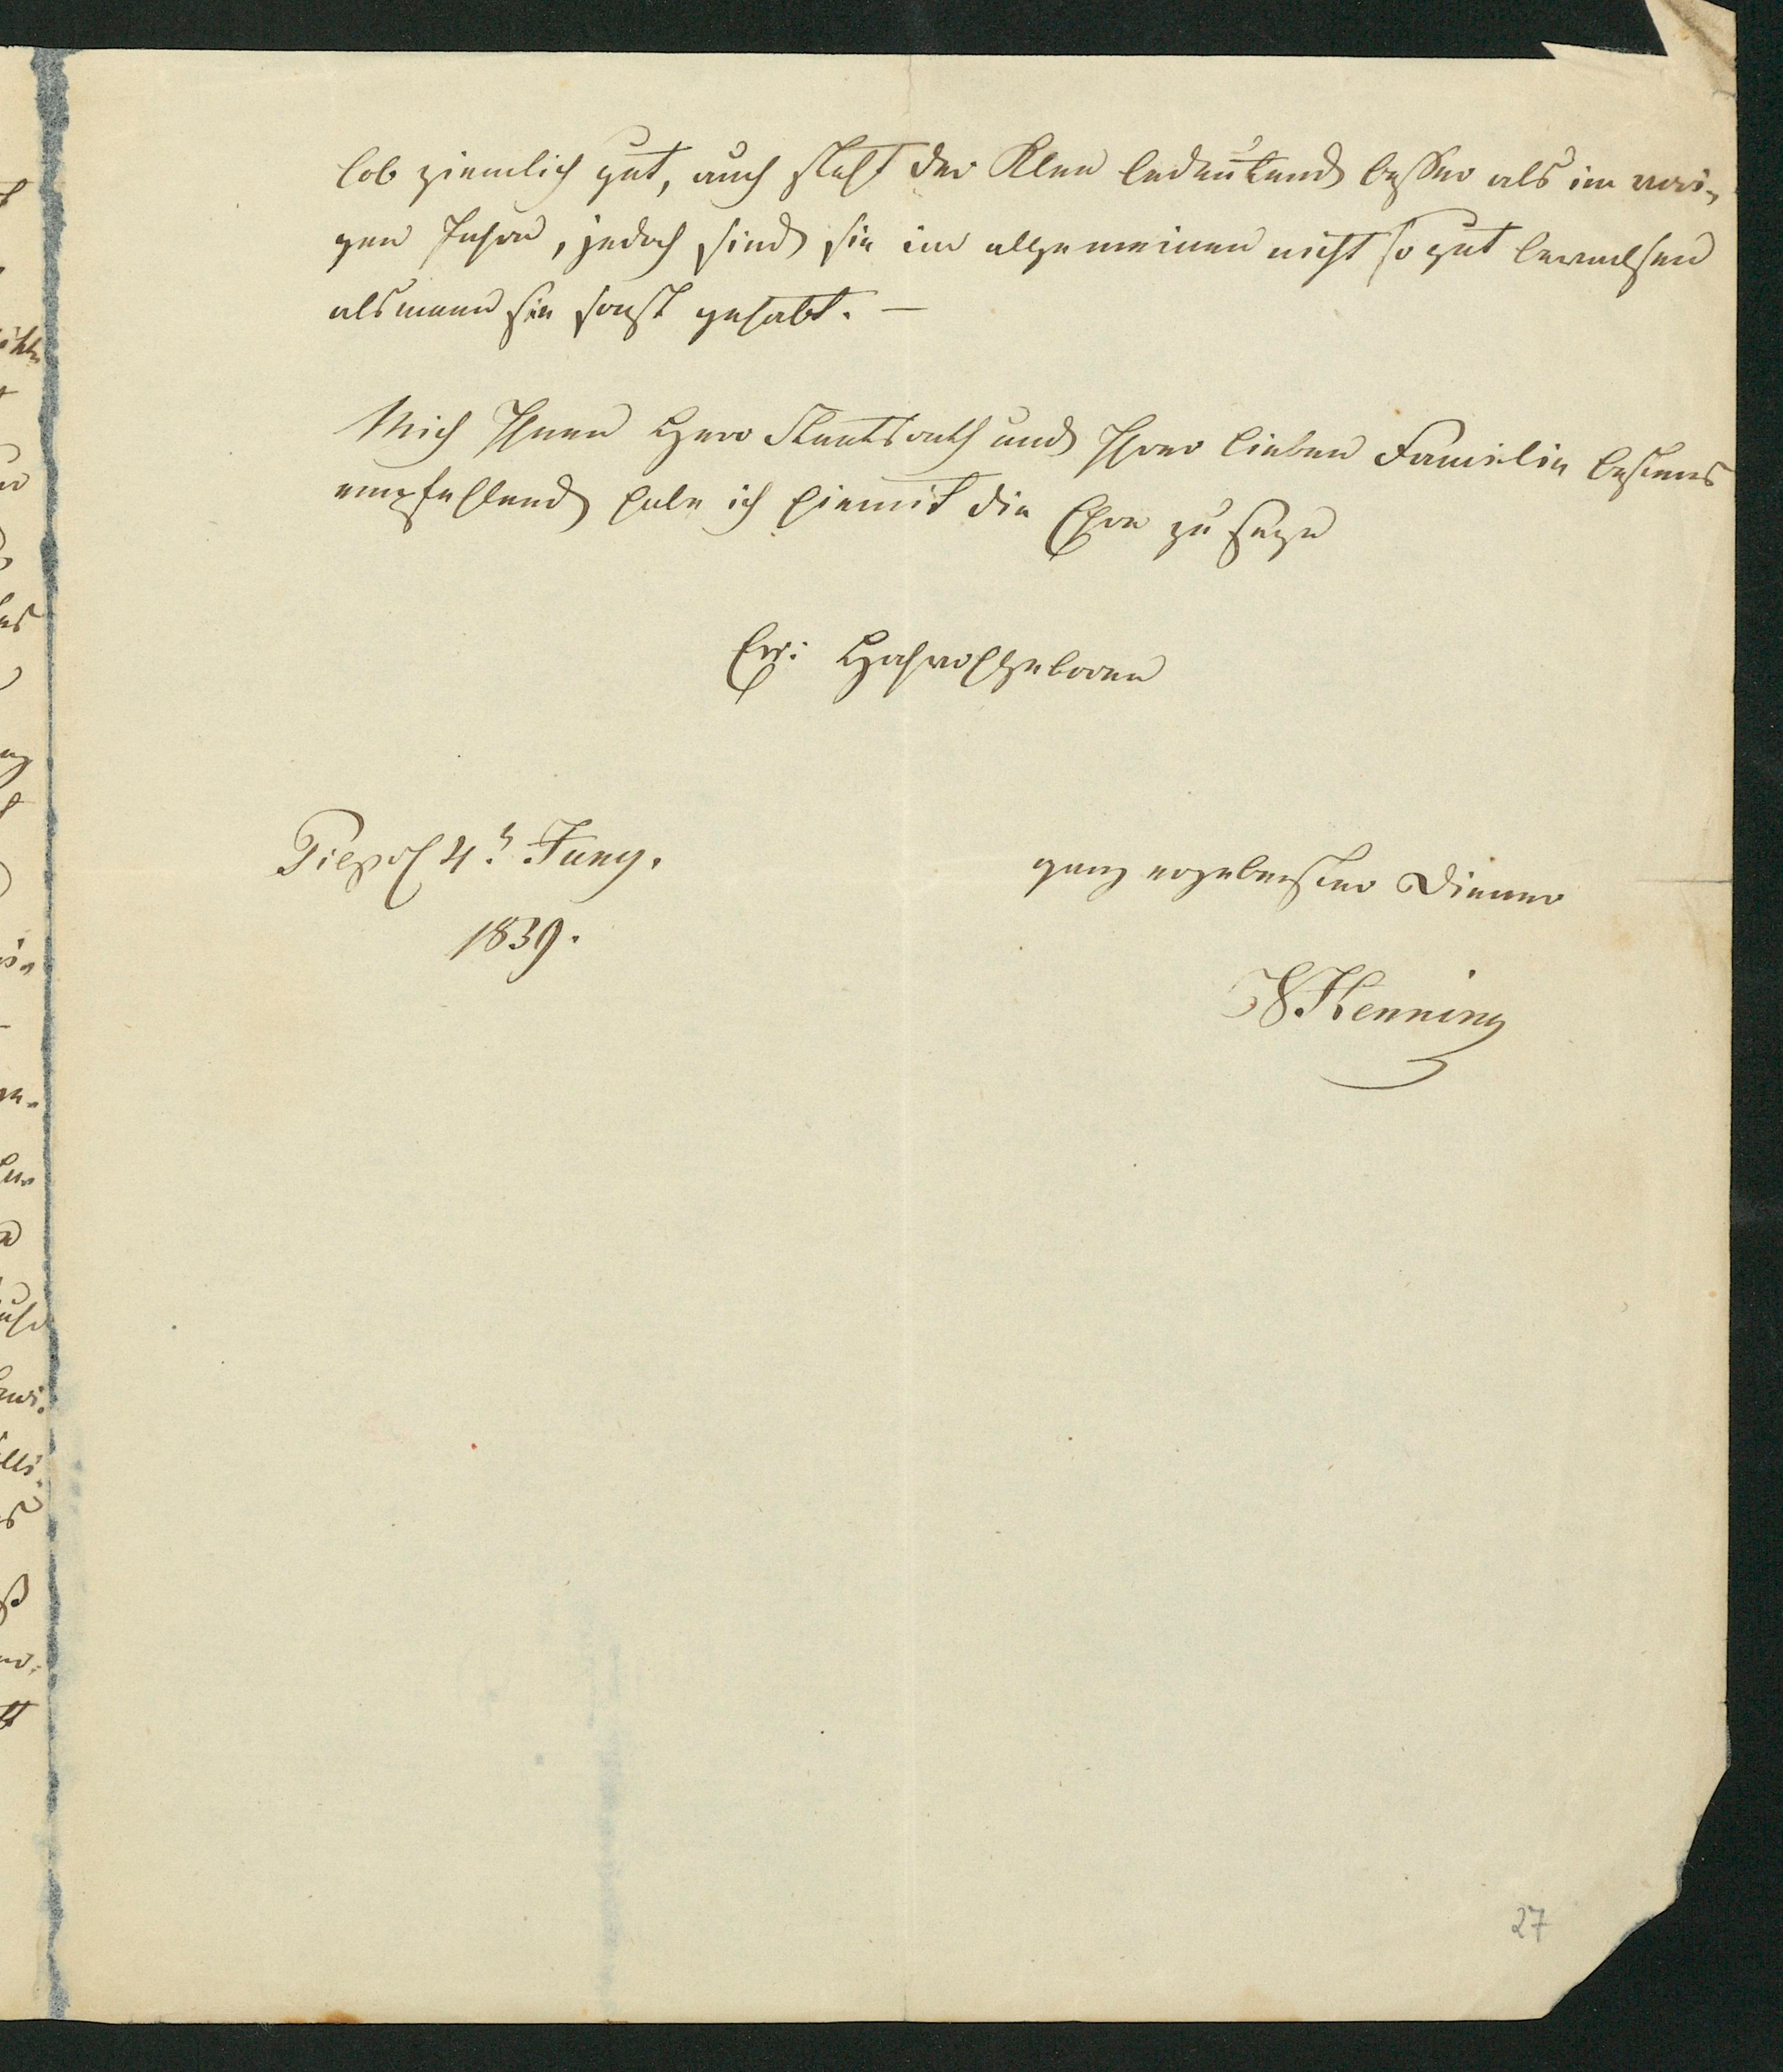 lob ziemlich gut, auch steht der Klee bedeutend besser als im vori-
gen Jahre, jedoch sind sie im allgemeinen nicht so gut bewachsen
als wenn sie sonst gehabt. —
Mich Ihnen Herr Staatsrath und Ihrer lieben Familie bestens
empfehlend habe ich hiemit die Ehre zu sein
Ew: Hochwohlgeboren
4t. Juny.
1839.
ganz ergebenster Diener
W. Henning
27